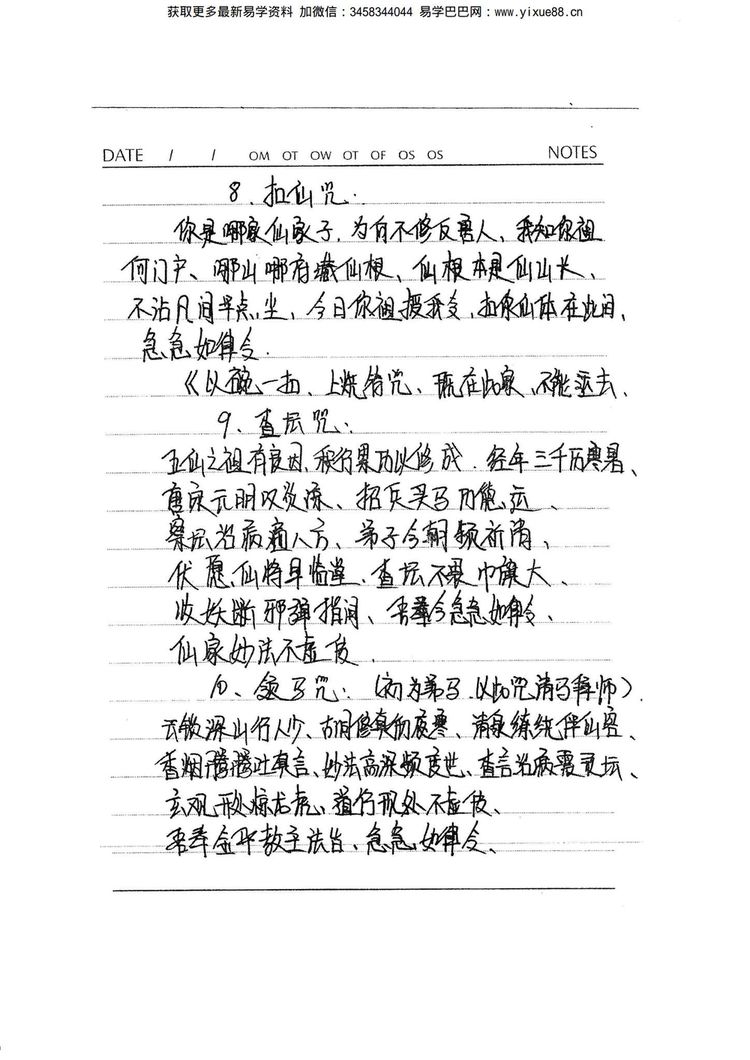 获取更多最新易学资料 加微信：3458344044 易学巴巴网：www.yixue88.cn
DATE / / OM OT OW OT OF OS OS NOTES
8、扣仙咒：
你是哪家仙家子，为何不修反害人、我知你祖
何门户、哪山哪府藏仙根、仙根本是仙山长、
不沾凡间半点尘、今日你祖授我令、扣你仙体在此间、
急急如律令.
《以碗一扣、上烧符咒、现在此家、不能逃去、
9、查坛咒：
五仙之祖有良因、行果历以修成、经年三千历寒暑、
唐宋元明以流、招兵买马功能运、
坛治病通八方、弟子今朝频祈请、
伏愿仙将早临堂、查坛不大、
收妖断邪弹指间、吾奉令急急如律令、
仙家妙法不虚传
10、马咒：（初为弟马、以此咒请马释师）
云散深山行人少、古洞修真的夜寒、清泉练绕伴仙客、
香烟腾腾吐真言、妙法高深频度世、查言治病震灵坛、
玄观形惊龙虎、道行现处不虚传、
吾奉金华教主法旨、急急如律令、